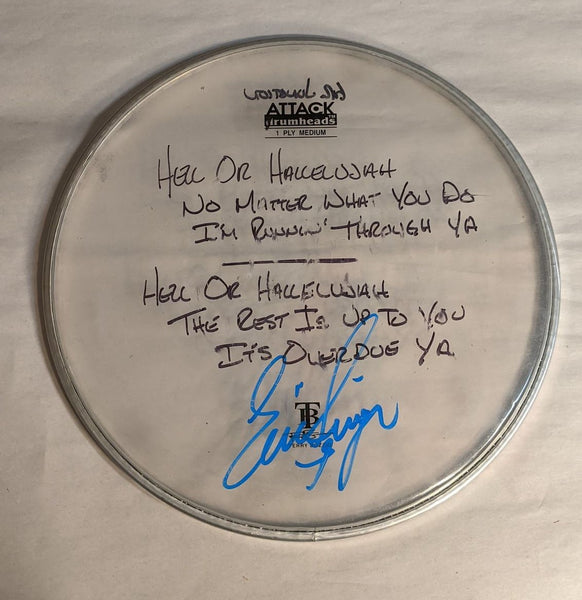 ATTACK
drumheads™
1 PLY MEDIUM
HELL OR HALLELUJAH
NO MATTER WHAT YOU DO
I'M RUNNIN' THROUGH YA
HELL OR HALLELUJAH
THE REST IS UP TO YOU
IT'S OVERDUE YA
Eric Singer
TB